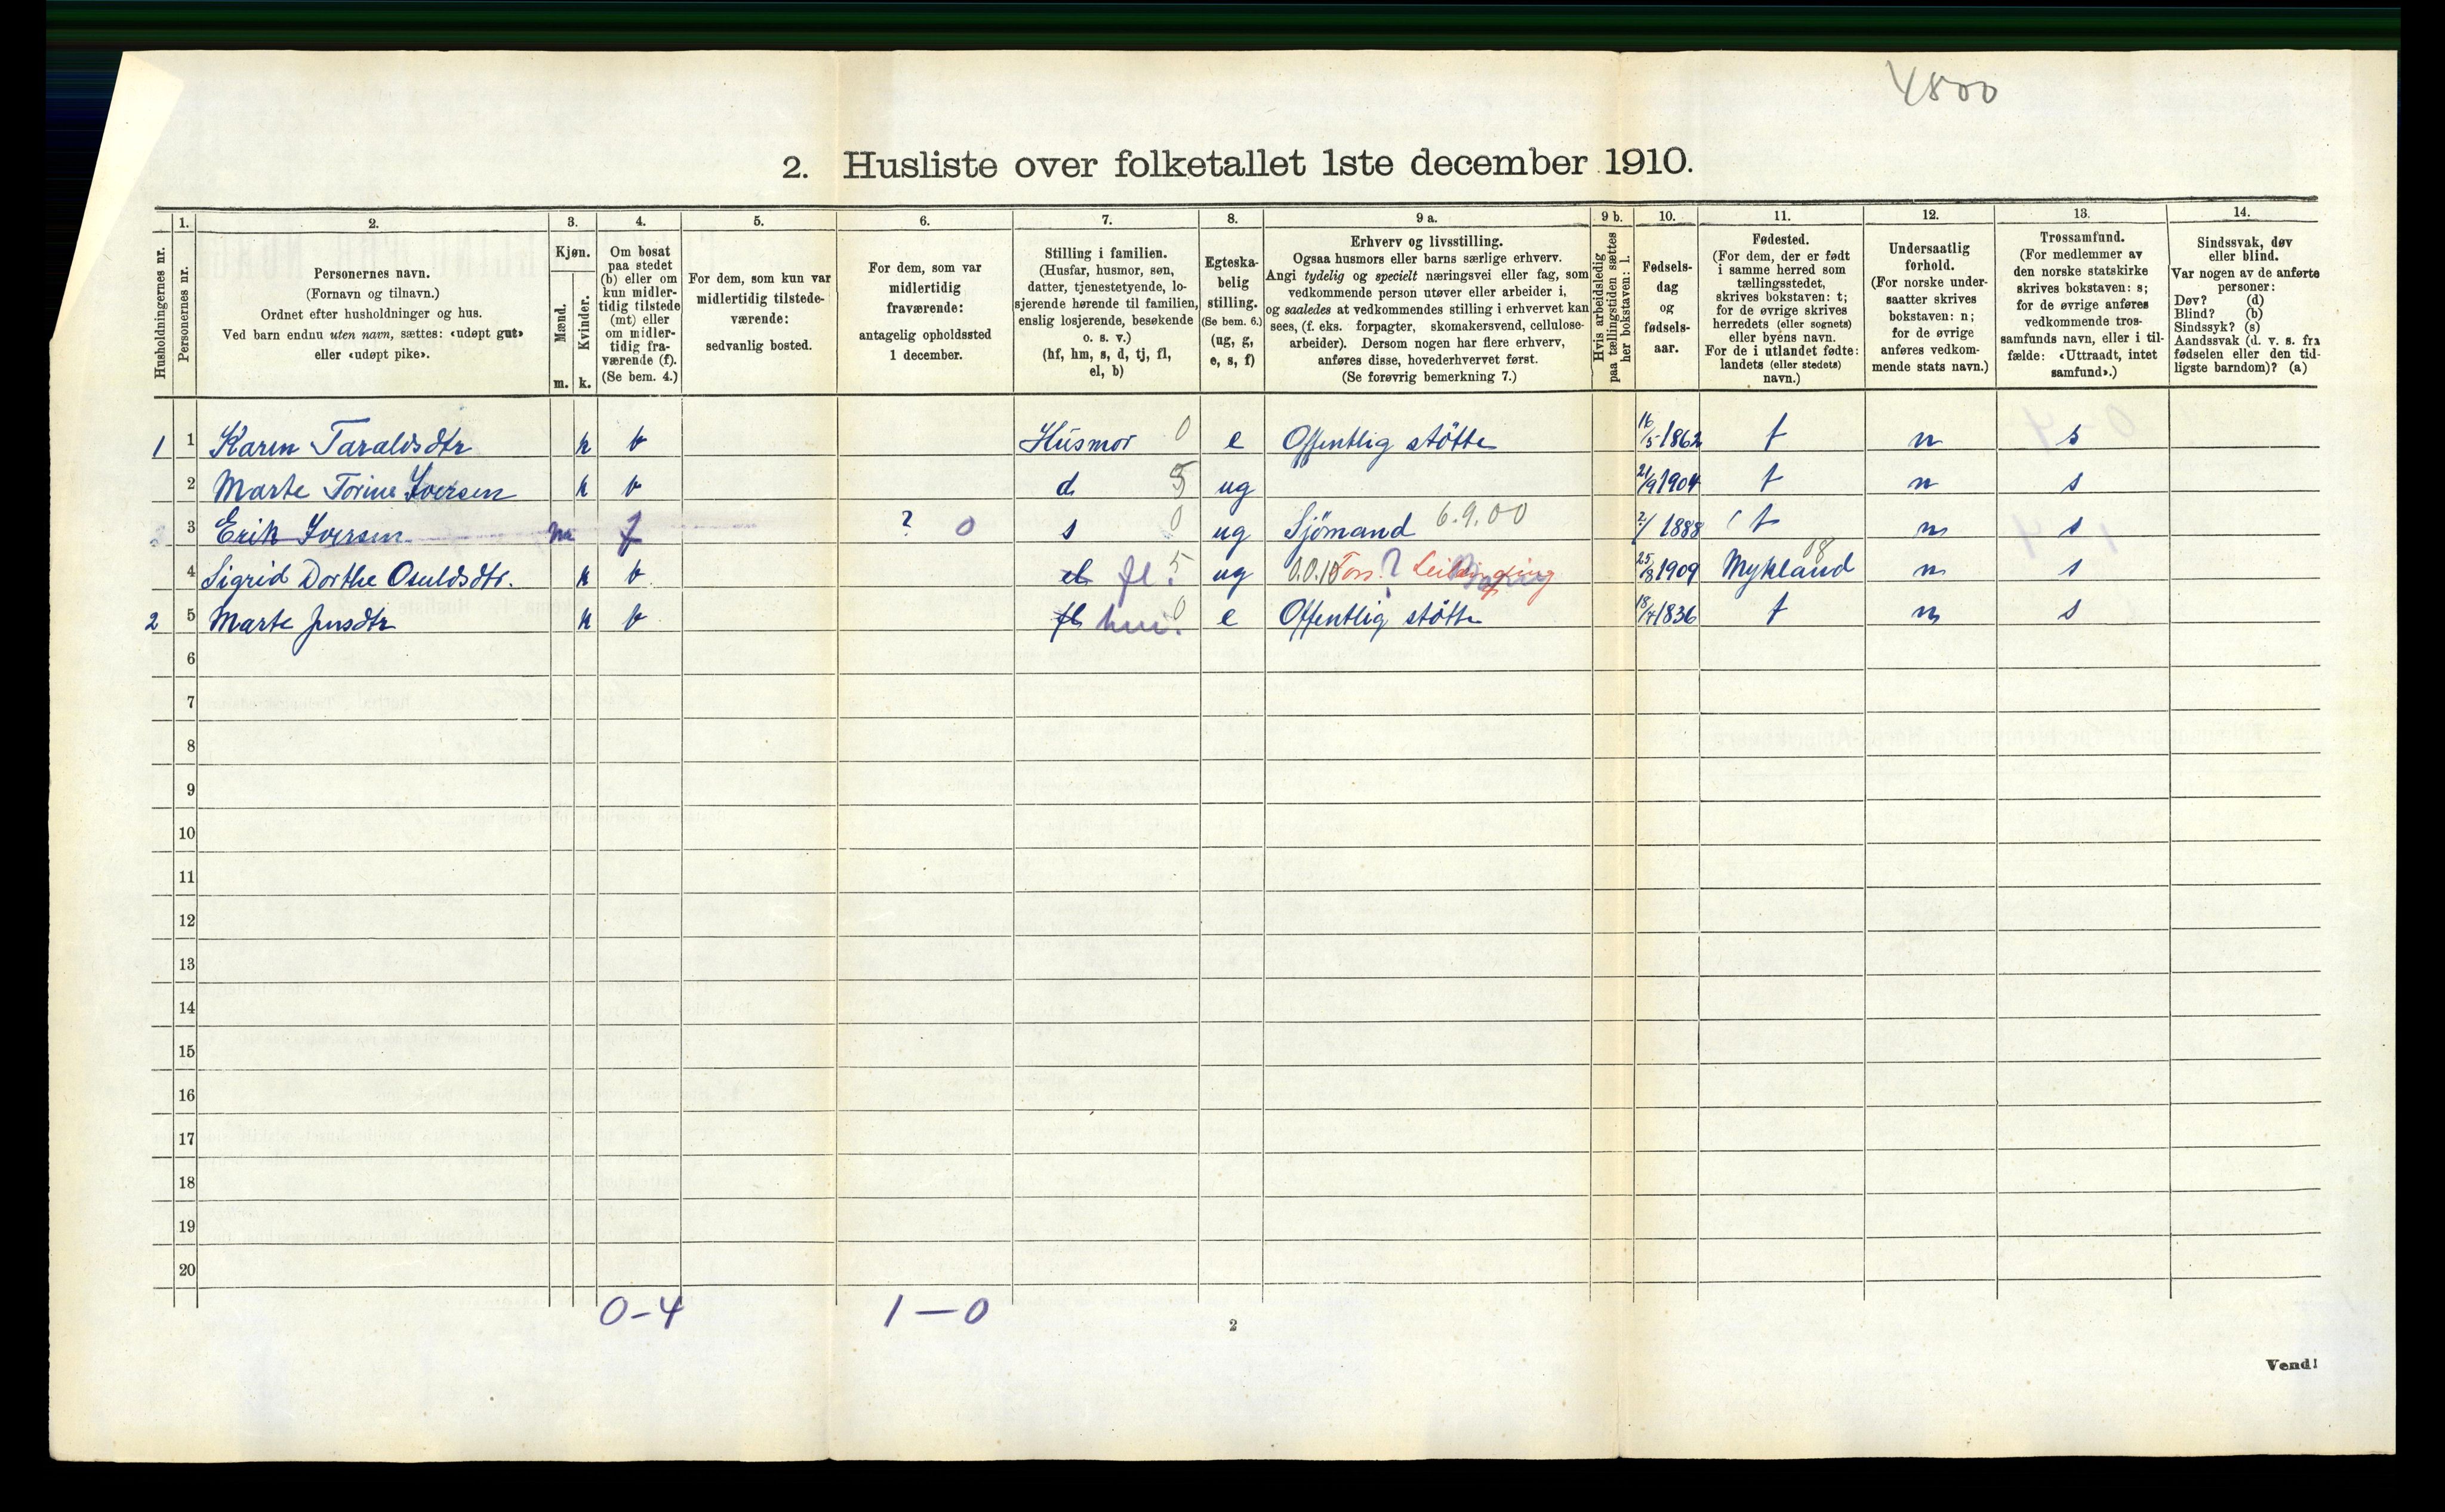 4800
2. Husliste over folketallet 1ste december 1910.
1. 2. 3. 4. 5. 6. 7. 8. 9 a. 9 b. 10. 11. 12. 13. 14.
Husholdningernes nr.
Personernes nr.
Personernes navn.
(Fornavn og tilnavn.)
Ordnet efter husholdninger og hus.
Ved barn endnu uten navn, sættes: «udøpt gut»
eller «udøpt pike».
Kjøn.
Mænd.
Kvinder.
m. k.
Om bosat
paa stedet
(b) eller om
kun midler-
tidig tilstede
(mt) eller
om midler-
tidig fra-
værende (f).
(Se bem. 4.)
For dem, som kun var
midlertidig tilstede-
værende:
sedvanlig bosted.
For dem, som var
midlertidig
fraværende:
antagelig opholdssted
1 december.
Stilling i familien.
(Husfar, husmor, søn,
datter, tjenestetyende, lo-
sjerende hørende til familien,
enslig losjerende, besøkende
o. s. v.)
(hf, hm, s, d, tj, fl,
el, b)
Egteska-
belig
stilling.
(Se bem. 6.)
(ug, g,
e, s, f)
Erhverv og livsstilling.
Ogsaa husmors eller barns særlige erhverv.
Angi tydelig og specielt næringsvei eller fag, som
vedkommende person utøver eller arbeider i,
og saaledes at vedkommendes stilling i erhvervet kan
sees, (f. eks. forpagter, skomakersvend, cellulose-
arbeider). Dersom nogen har flere erhverv,
anføres disse, hovederhvervet først.
(Se forøvrig bemerkning 7.)
Hvis arbeidsledig
paa tællingstiden sættes
her bokstaven: l.
Fødsels-
dag
og
fødsels-
aar.
Fødested.
(For dem, der er født
i samme herred som
tællingsstedet,
skrives bokstaven: t;
for de øvrige skrives
herredets (eller sognets)
eller byens navn.
For de i utlandet fødte:
landets (eller stedets)
navn.)
Undersaatlig
forhold.
(For norske under-
saatter skrives
bokstaven: n;
for de øvrige
anføres vedkom-
mende stats navn.)
Trossamfund.
(For medlemmer av
den norske statskirke
skrives bokstaven: s;
for de øvrige anføres
vedkommende tros-
samfunds navn, eller i til-
fælde: «Uttraadt, intet
samfund».)
Sindssvak, døv
eller blind.
Var nogen av de anførte
personer:
Døv? (d)
Blind? (b)
Sindssyk? (s)
Aandssvak (d. v. s. fra
fødselen eller den tid-
ligste barndom)? (a)
1 1 Karen Taraldsdtr k b Husmor 0 e Offentlig støtte 16/5 1862 t n s
2 Marte Torine Iversen k b d 5 ug 21/9 1904 t n s
3 Erik Iversen m f ? 0 s 0 ug Sjömand 6.9.00 2/ 1888 t n s
4 Sigrid Dorthe Osuldsdtr. k b el fl. 5 ug 25/8 1909 Mykland 08 n s
2 5 Marte Jensdtr k b fl hm. 0 e Offentlig støtte 18/4 1836 t n s
6
7
8
9
10
11
12
13
14
15
16
17
18
19
20
0-4 1-0
2
Vend!